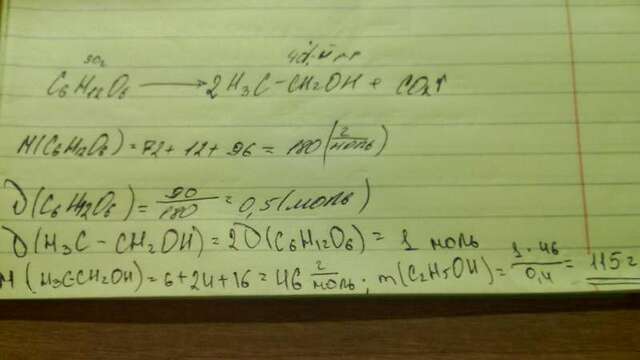 90г 40%-й р-р
C6H12O6 → 2H3C-CH2OH + CO2↑
M(C6H12O6) = 72 + 12 + 96 = 180 (г/моль)
ν(C6H12O6) = 90/180 = 0,5 (моль)
ν(H3C-CH2OH) = 2ν(C6H12O6) = 1 моль
M(H3CCH2OH) = 6 + 24 + 16 = 46 г/моль; m(C2H5OH) = 1·46/0,4 = 115 г